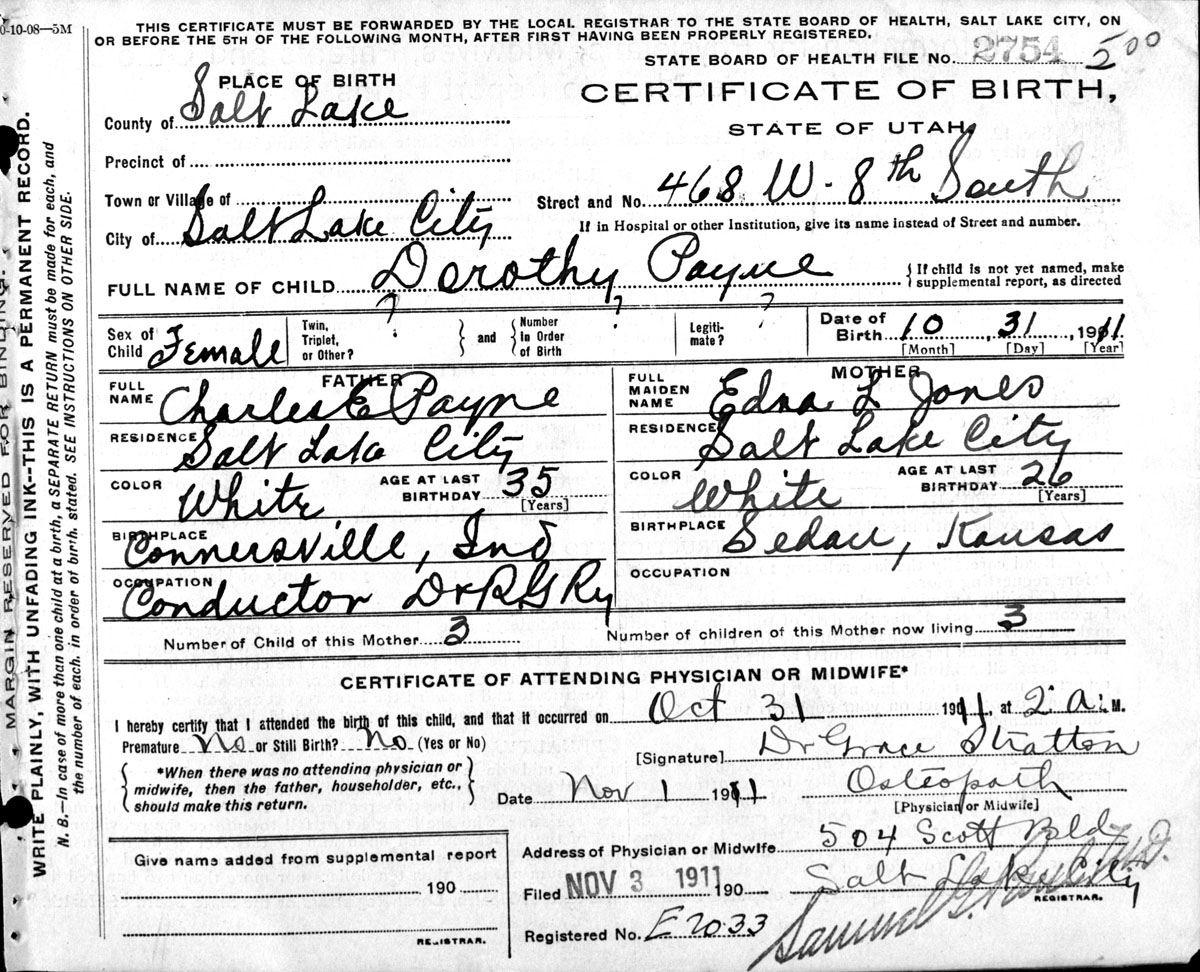 0-10-08—5M
THIS CERTIFICATE MUST BE FORWARDED BY THE LOCAL REGISTRAR TO THE STATE BOARD OF HEALTH, SALT LAKE CITY, ON
OR BEFORE THE 5TH OF THE FOLLOWING MONTH, AFTER FIRST HAVING BEEN PROPERLY REGISTERED.
STATE BOARD OF HEALTH FILE No. 2754 500
PLACE OF BIRTH
CERTIFICATE OF BIRTH,
STATE OF UTAH
County of Salt Lake
Precinct of
Town or Village of
Street and No. 468 W. 8th South
City of Salt Lake City
If in Hospital or other Institution, give its name instead of Street and number.
FULL NAME OF CHILD Dorothy Payne
If child is not yet named, make
supplemental report, as directed
Sex of Child Female
Twin, Triplet, or Other? ?
and
Number in Order of Birth ?
Legiti-mate? ?
Date of Birth 10, 31, 1911
[Month] [Day] [Year]
FATHER
FULL NAME Charles E Payne
RESIDENCE Salt Lake City
COLOR White
AGE AT LAST BIRTHDAY 35
[Years]
BIRTHPLACE Connersville, Ind
OCCUPATION Conductor D&RG Ry
MOTHER
FULL MAIDEN NAME Edna L Jones
RESIDENCE Salt Lake City
COLOR White
AGE AT LAST BIRTHDAY 26
[Years]
BIRTHPLACE Sedan, Kansas
OCCUPATION
Number of Child of this Mother 3
Number of children of this Mother now living 3
CERTIFICATE OF ATTENDING PHYSICIAN OR MIDWIFE*
I hereby certify that I attended the birth of this child, and that it occurred on Oct 31 1911, at 2 a. M.
Premature No or Still Birth? No (Yes or No)
[Signature] Dr Grace Stratton
*When there was no attending physician or
midwife, then the father, householder, etc.,
should make this return.
Date Nov 1 1911
Osteopath
[Physician or Midwife]
Address of Physician or Midwife 504 Scott Bldg
Salt Lake City
Give name added from supplemental report
190
REGISTRAR.
Filed NOV 3 1911 190
Samuel G.
REGISTRAR.
Registered No. E2033
MARGIN RESERVED FOR BINDING.
WRITE PLAINLY, WITH UNFADING INK--THIS IS A PERMANENT RECORD.
N. B.—In case of more than one child at a birth, a SEPARATE RETURN must be made for each, and
the number of each, in order of birth, stated. SEE INSTRUCTIONS ON OTHER SIDE.